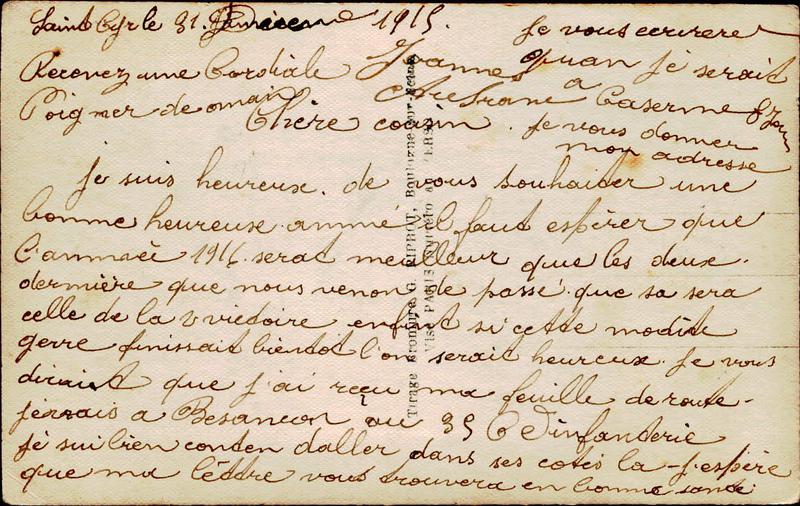 Saint Cyr le 31. 1915.
Je vous ecrirere
quan je serait
a Caserme
je vous donner
mon adresse
Recevez une Cordiale
Poigner de main
Joannes
Chère cousin.
Je suis heureux. de vous souhaiter une
bonne heureuse année il faut espérer que
l'année 1916 serat meilleur que les deux.
dernière que nous venon de passé. que sa sera
celle de la victoire enfin si cette modite
gerre finissait bientot l'on serait heureux. Je vous
dirait que j'ai reçu ma feuille de route.
jerrais a Besancon au 35 C D'infanderie
je sui bien conten daller dans ses cotés la j'espère
que ma léttre vous trouvera en bonne santé
Tirage Bromure G. RIPROT, Boulogne-sur-Seine
Visé PARIS Numéro au VERSO